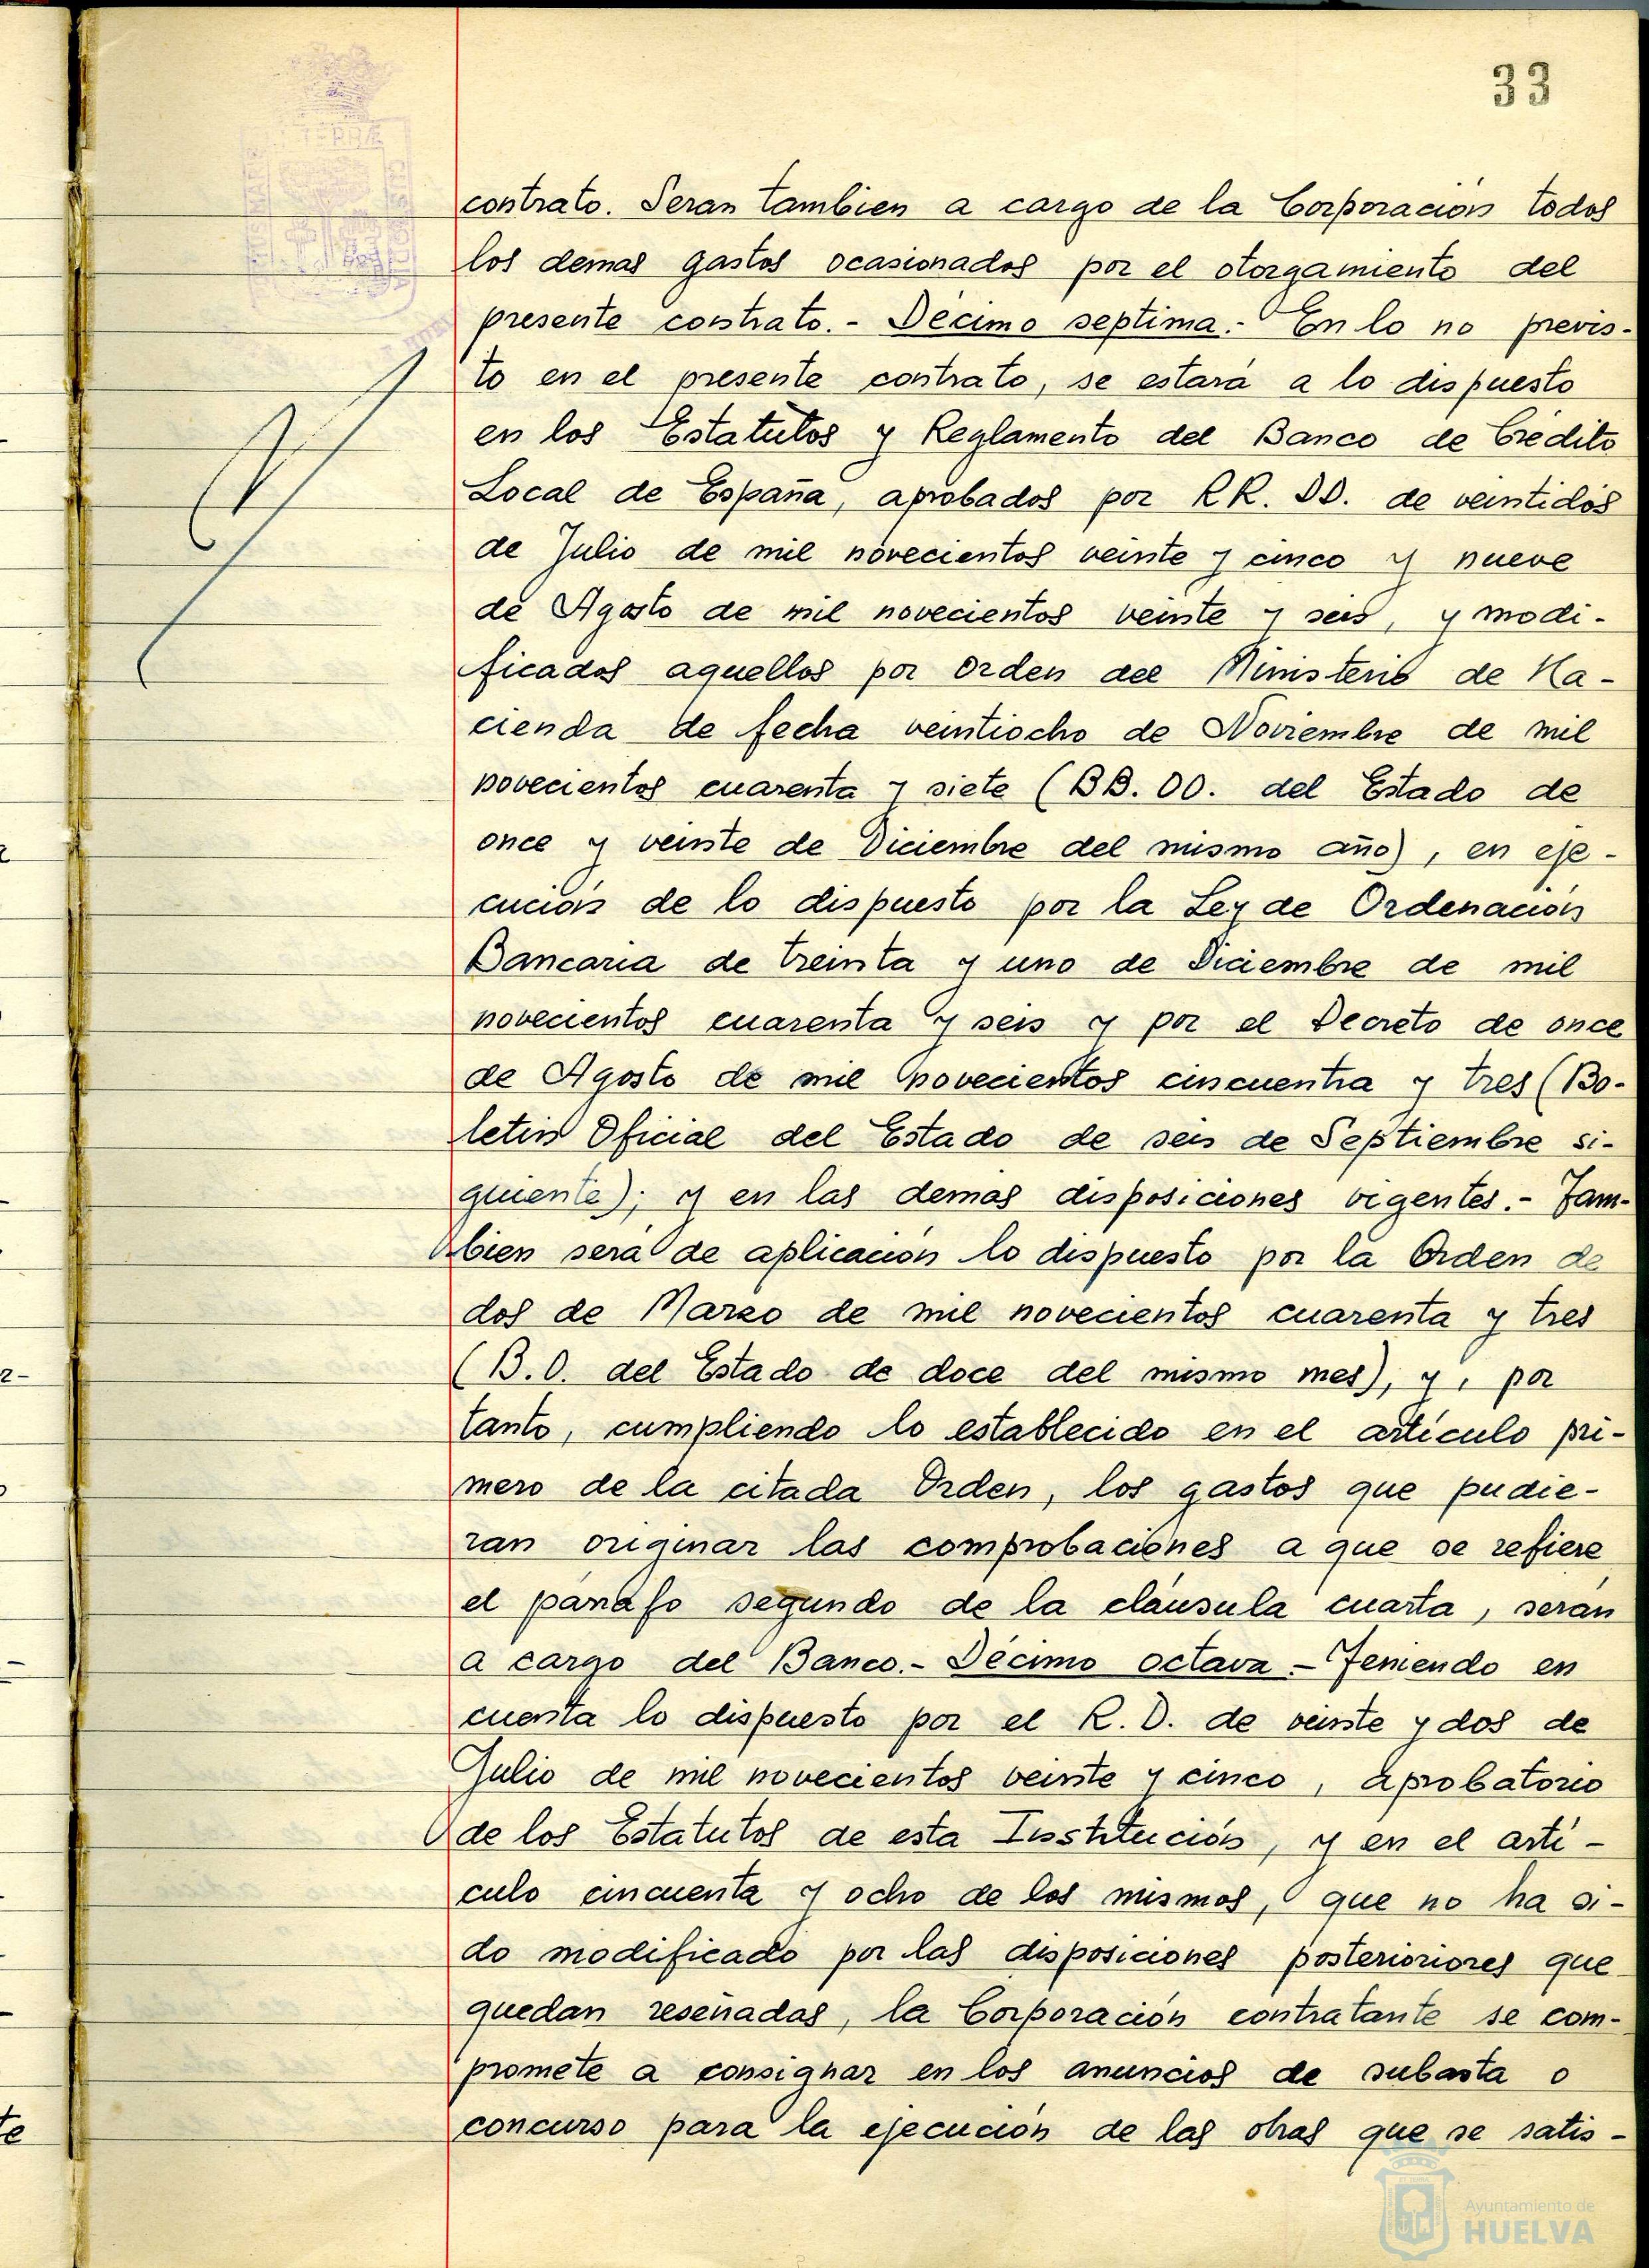 33
contrato. Seran tambien a cargo de la Corporación todos
los demas gastos ocasionados por el otorgamiento del
presente contrato.- Décimo septima.- En lo no previs-
to en el presente contrato, se estará a lo dispuesto
en los Estatutos y Reglamento del Banco de Crédito
Local de España, aprobados por RR. DD. de veintidós
de Julio de mil novecientos veinte y cinco y nueve
de Agosto de mil novecientos veinte y seis, y modi-
ficados aquellos por orden del Ministerio de Ha-
cienda de fecha veintiocho de Noviembre de mil
novecientos cuarenta y siete (BB. OO. del Estado de
once y veinte de Diciembre del mismo año), en eje-
cución de lo dispuesto por la Ley de Ordenación
Bancaria de treinta y uno de Diciembre de mil
novecientos cuarenta y seis y por el Decreto de once
de Agosto de mil novecientos cincuentra y tres (Bo-
letin Oficial del Estado de seis de Septiembre si-
guiente); y en las demas disposiciones vigentes.- Tam-
bien será de aplicación lo dispuesto por la Orden de
dos de Marzo de mil novecientos cuarenta y tres
(B.O. del Estado de doce del mismo mes), y, por
tanto, cumpliendo lo establecido en el artículo pri-
mero de la citada Orden, los gastos que pudie-
ran originar las comprobaciones a que se refiere
el párrafo segundo de la cláusula cuarta, serán
a cargo del Banco.- Décimo octava.- Teniendo en
cuenta lo dispuesto por el R.D. de veinte y dos de
Julio de mil novecientos veinte y cinco, aprobatorio
de los Estatutos de esta Institución, y en el artí-
culo cincuenta y ocho de los mismos, que no ha si-
do modificado por las disposiciones posterioriores que
quedan reseñadas, la Corporación contratante se com-
promete a consignar en los anuncios de subasta o
concurso para la ejecución de las obras que se satis-
Ayuntamiento de
HUELVA